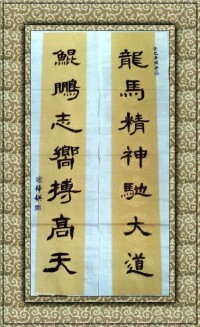 龍馬精神馳大道
鯤鵬志嚮搏高天